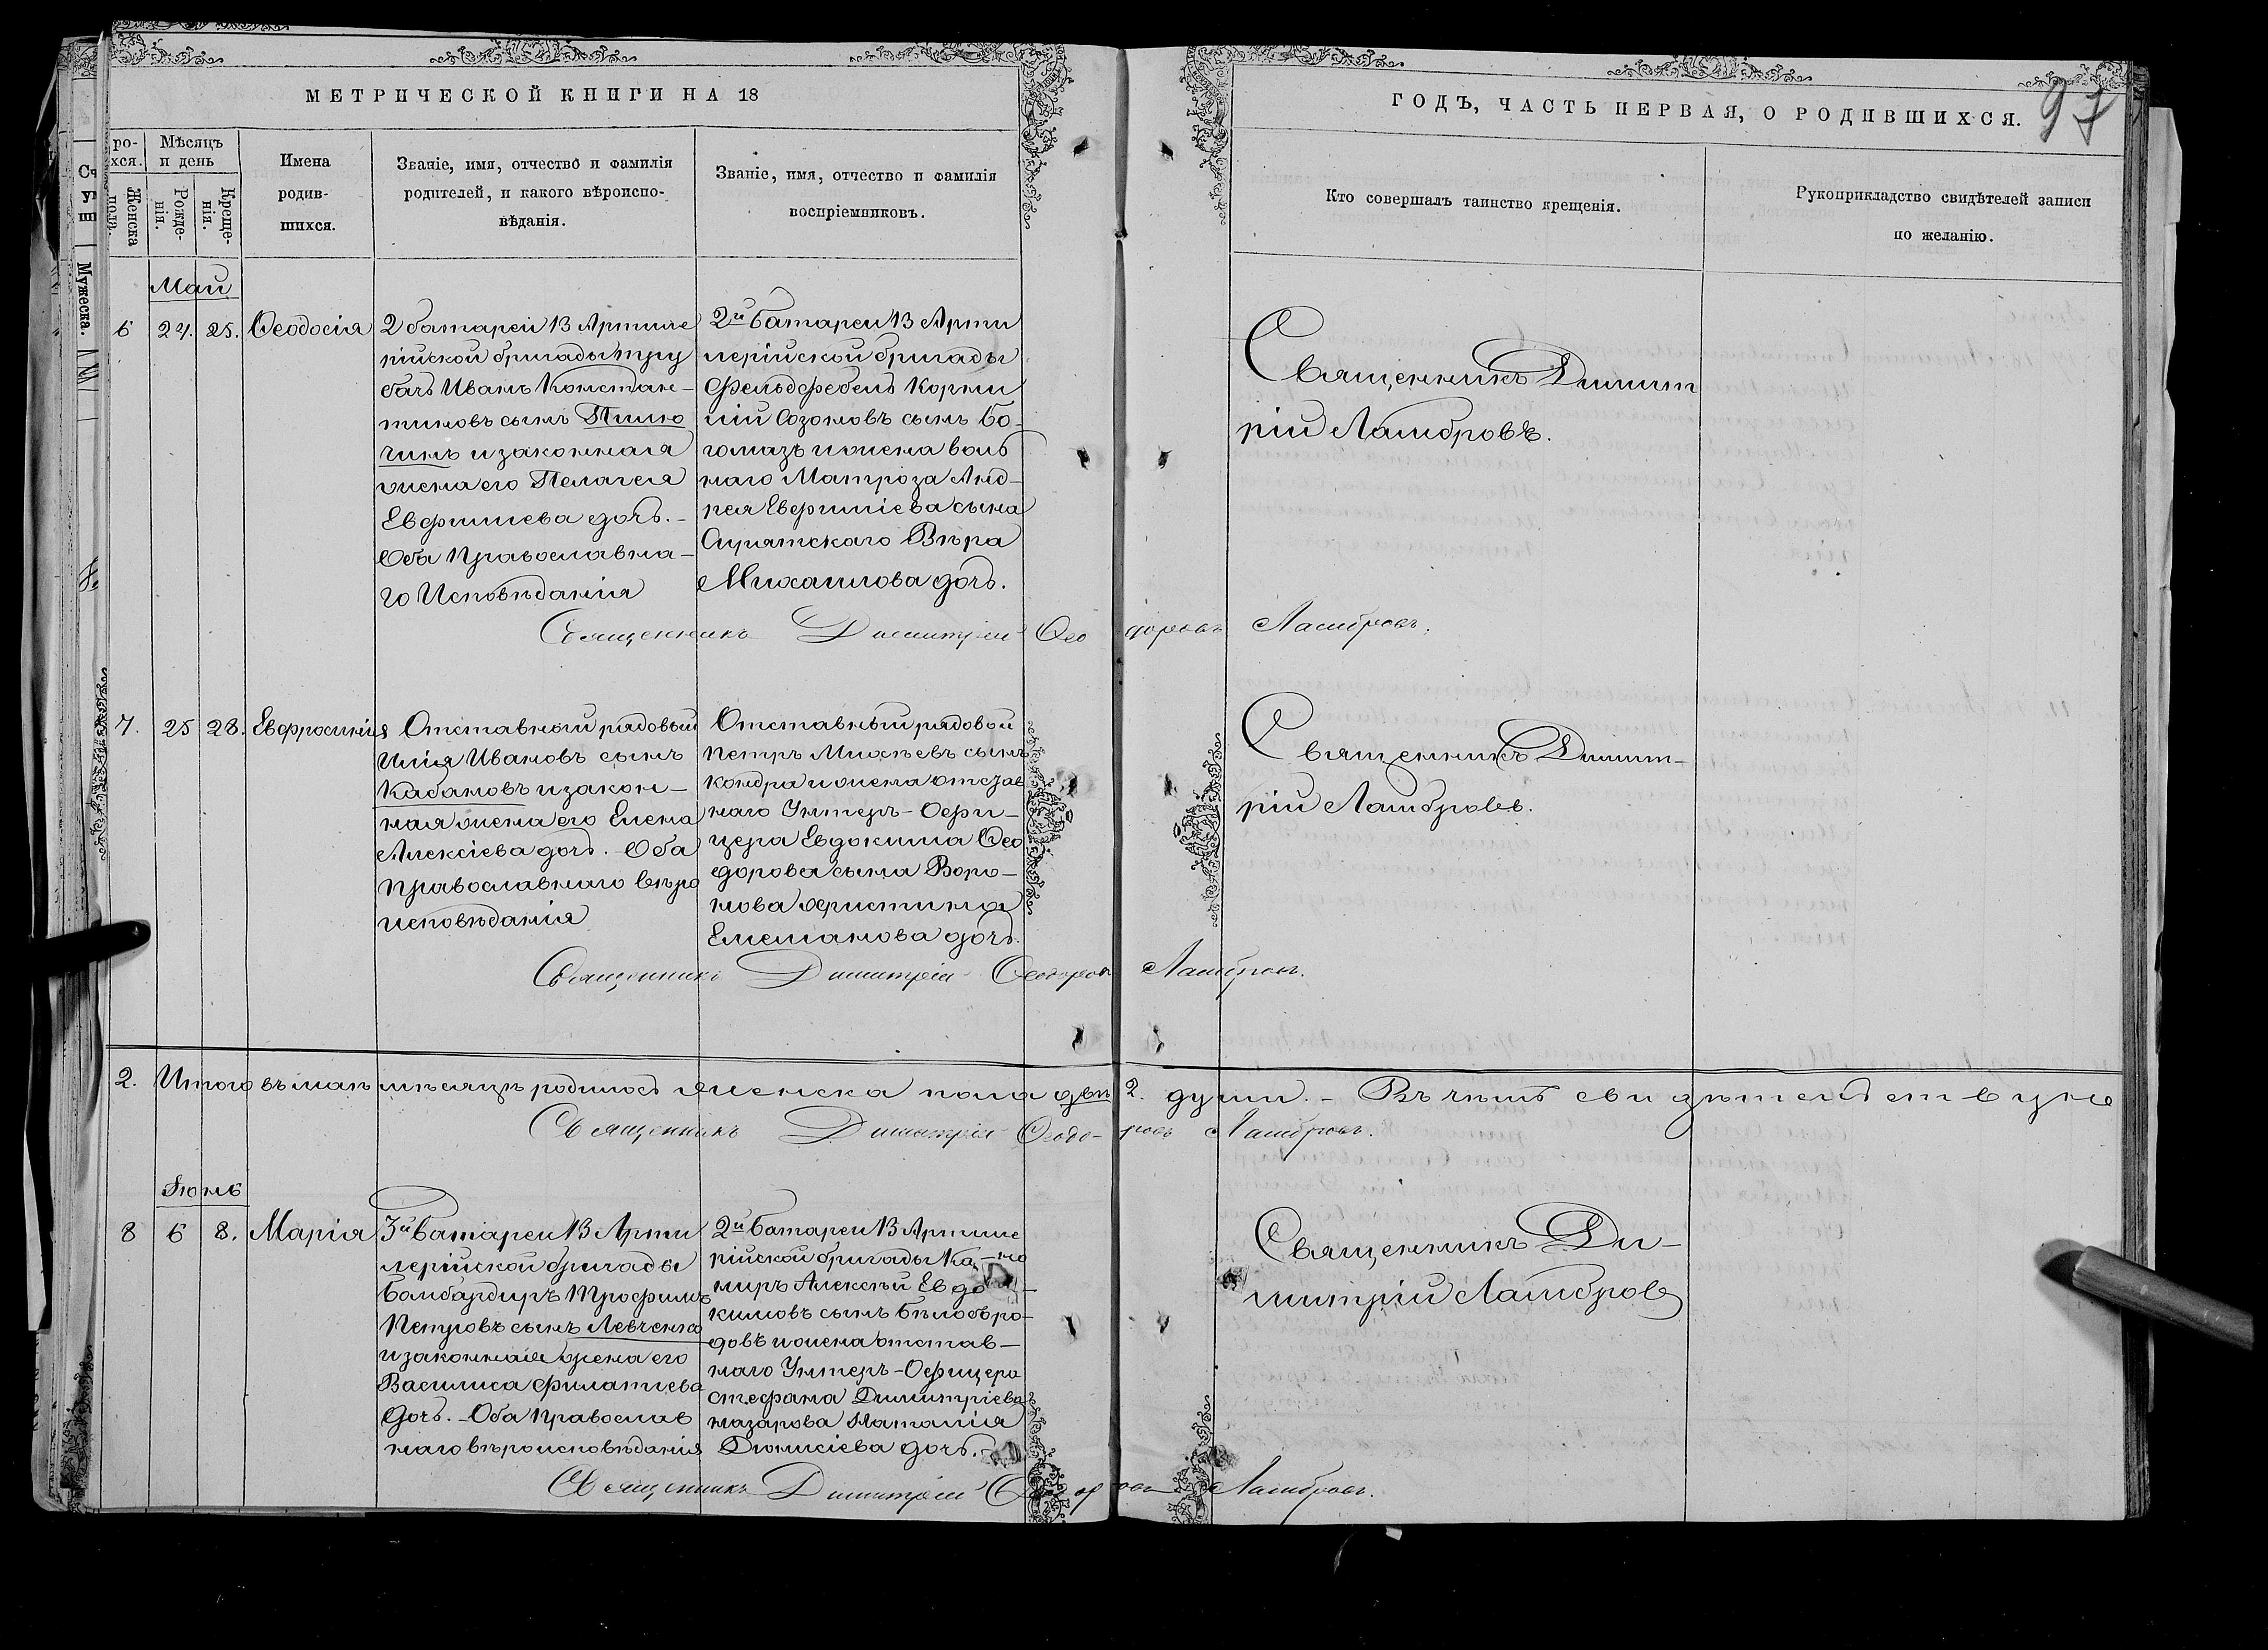 МЕТРИЧЕСКОЙ КНИГИ НА 18
ГОДЪ, ЧАСТЬ ПЕРВАЯ, О РОДИВШИХСЯ.
97
ро-
хся.
Женска
полъ.
Мѣсяцъ
и день
Рожде-
нія.
Креще-
нія.
Имена
родив-
шихся.
Званіе, имя, отчество и фамилія
родителей, и какого вѣроиспо-
вѣданія.
Званіе, имя, отчество и фамилія
воспріемниковъ.
Кто совершалъ таинство крещенія.
Рукоприкладство свидѣтелей записи
по желанію.
Мужеска.
Май
6 24. 25. Ѳеодосія
2 батареи 13 Артиле
рійской бригады тру
бачъ Иванъ Констан-
тиновъ сынъ
и законная
жена его Пелагея
Евфимиева дочь.-
Оба Православна-
го Исповѣданія
2й Батареи 13 Арти
лерійской бригады
Фельдфебель Корни
лій Созоновъ сынъ Бо-
гомазъ и жена воль
наго Матроза Анд-
рея Евфиміева сына
Вѣра
Михаилова дочь.
Священникъ Димит
рій Ламбровъ.
Священникъ Димитрій Ѳео доровъ Ламбровъ.
7. 25 28. Евфросинія
Отставный рядовый
Илія Ивановъ сынъ
Кабановъ и закон-
ная жена его Елена
Алексіева дочь. Оба
Православнаго вѣро
исповѣданія
Отставный рядовой
Петръ Михѣевъ сынъ
Кондра и жена отстав
наго Унтеръ-Офи-
цера Евдокима Ѳео
дорова сына Воро-
нова Христина
Емелианова дочь.
Священникъ Димит-
рій Ламбровъ.
Священникъ Димитрій Ѳеодоровъ Ламбровъ.
2. Итого въ маѣ мѣсяцѣ родилось женска пола двѣ 2. души.- Въ чемъ свидѣтельствую
Священникъ Димитрій Ѳеодо-ровъ Ламбровъ.
Іюнь
8 6 8. Марія
3й Батареи 13 Арти
лерійской бригады
Бомбардиръ Трофимъ
Петровъ сынъ Левченко
и законная жена его
Василиса Филатиева
дочь.-Оба Православ
наго вѣроисповѣданія
2й Батареи 13 Артиле
рійской бригады Ка-но
ниръ Алексѣй Евдо-
кимовъ сынъ Бѣлобро-
довъ и жена отстав-
наго Унтеръ-Офицера
Стефана Димитріева
Назарова Наталія
Діонисіева дочь.-
Священникъ Ди-
митрій Ламбровъ
Священникъ Димитрій Ѳеодоровъ Ламбровъ.